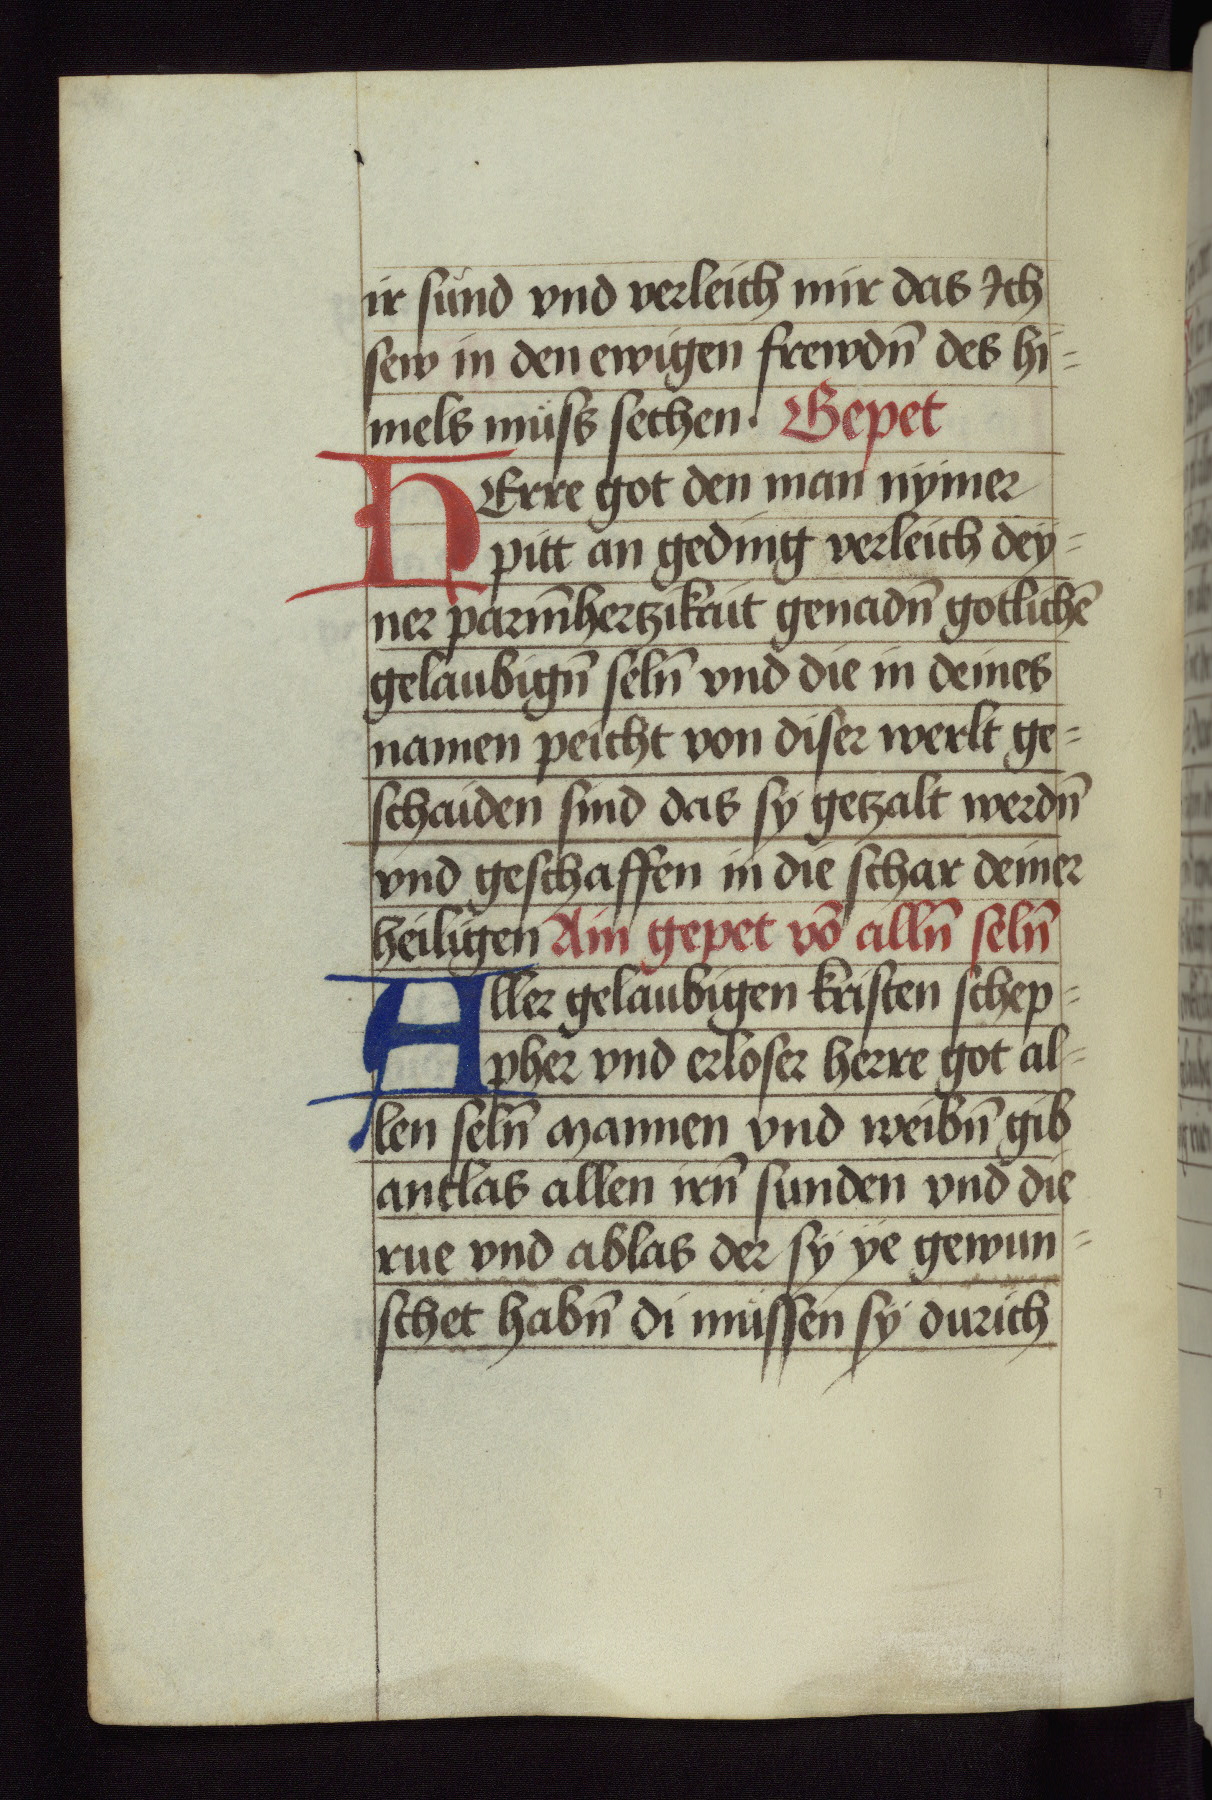 ir sünd vnd verleich mir das Ich
sew in den ewigen frewdn̄ des hi=
mels müss sechen. Gepet
HErre got den man nymer
pitt an geding verleich dey=
ner parm̄hertzikait genadn̄ gotlichē
gelaubign̄ seln̄ vnd die in deines
namen peicht von diser werlt ge=
schaiden sind das sy getzalt werdn̄
vnd geschaffen in die schar deiner
heiligen Ain gepet vō alln̄ seln̄
Aller gelaubigen kristen schep=
pher vnd erloser herre got al=
len seln̄ mannen vnd weibn̄ gib
antlas allen irn̄ sunden vnd die
rue vnd ablas der sy ye gewun=
schet habn̄ di müssen sy durich